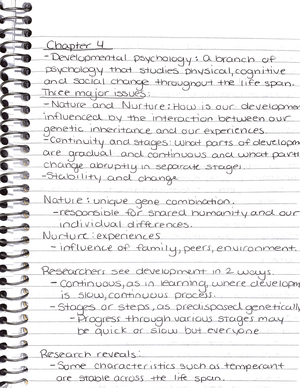 Chapter 4
- Developmental psychology: a branch of
psychology that studies physical, cognitive
and social change throughout the life span.
Three major issues:
- Nature and Nurture: How is our developmen
influenced by the interaction between our
genetic inheritance and our experiences.
- Continuity and stages: what parts of developm
are gradual and continuous and what parts
change abruptly in separate stages.
- Stability and change
Nature: unique gene combination.
- responsible for shared humanity and our
individual differences.
Nurture: experiences
- influence of family, peers, environment.
Researchers see development in 2 ways.
- Continuous, as in learning, where developm
is slow, continuous process.
- Stages or steps, as predisposed genetically
- Progress through various stages may
be quick or slow but everyone
Research reveals:
- Some characteristics such as temperant
are stable across the life span.